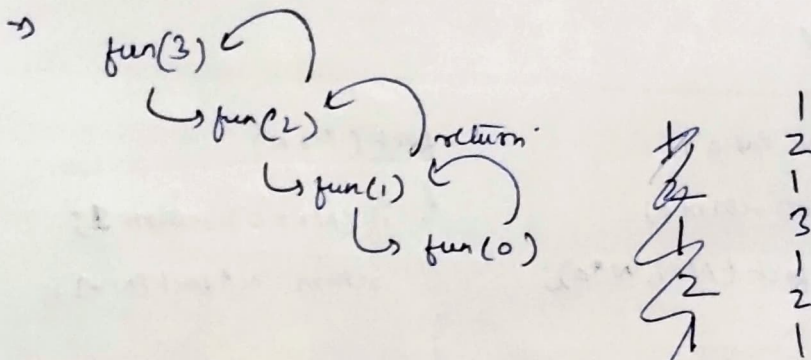 → fun(3)
↳ fun(2)
return
↳ fun(1)
↳ fun(0)
1
2
1
3
1
2
1